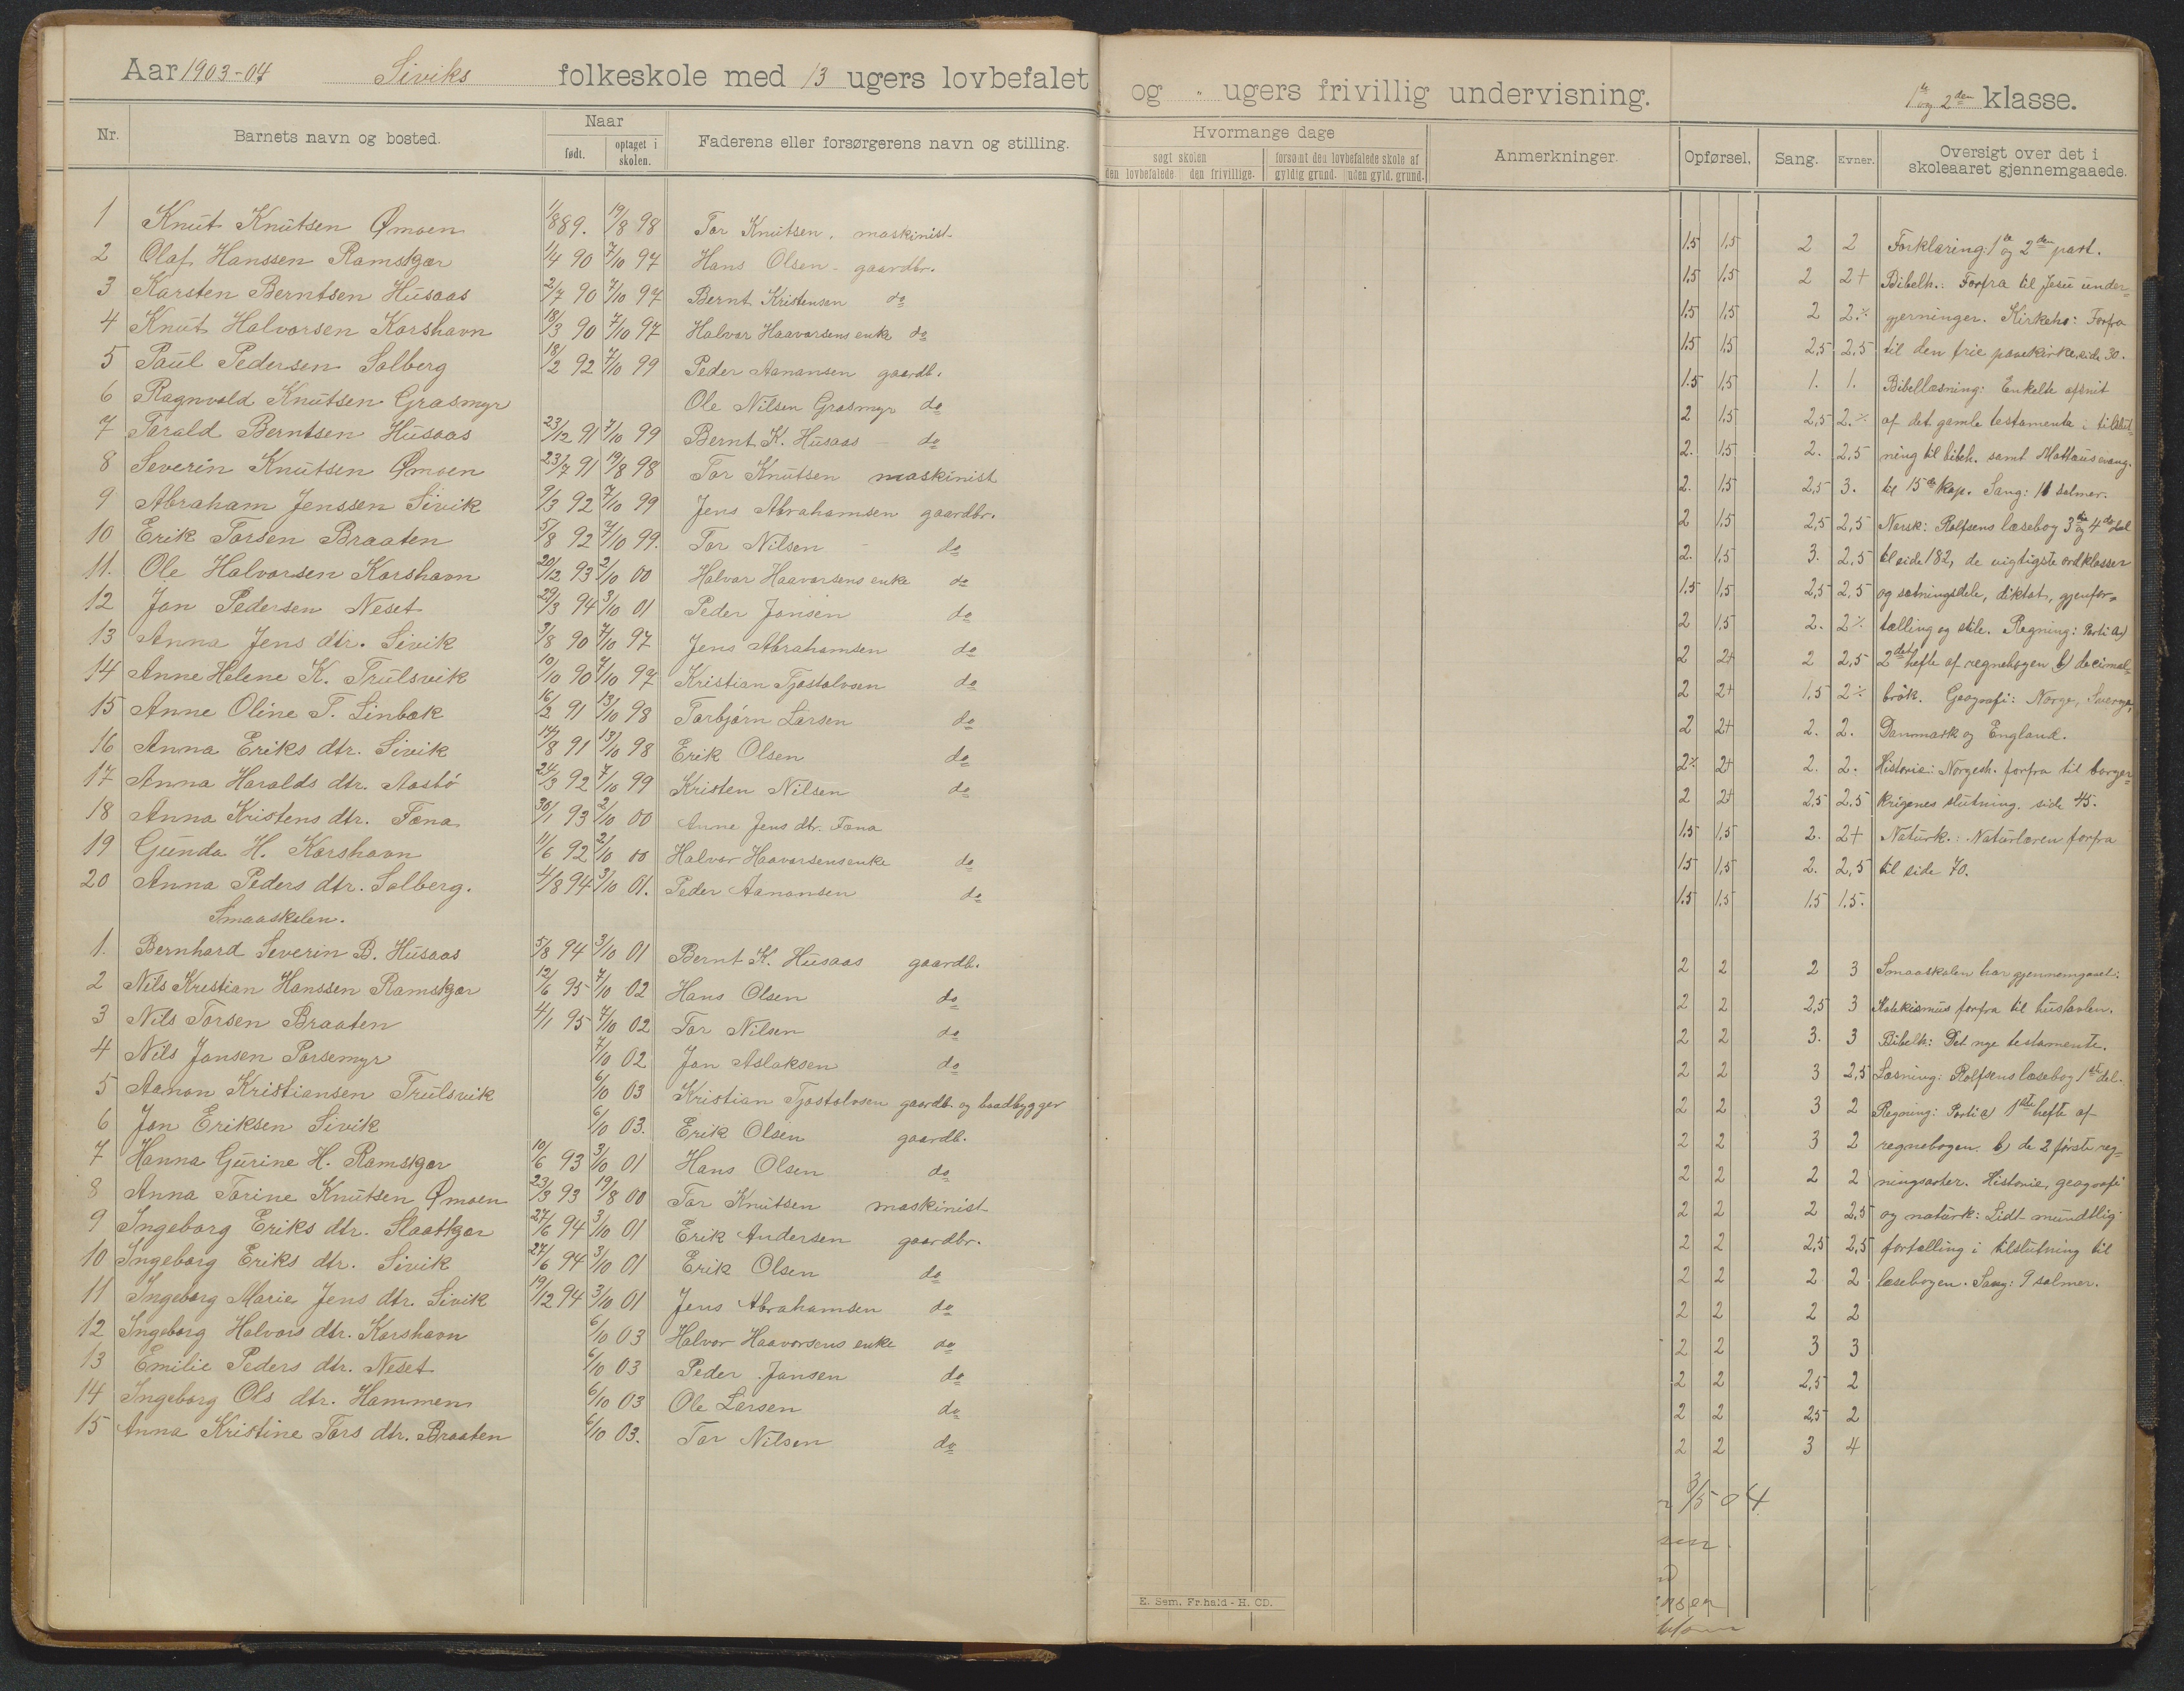 Aar 1903-04 Siviks folkeskole med 13 ugers lovbefalet og " ugers frivillig undervisning. 1ste og 2den klasse.
Nr. Barnets navn og bosted. Naar født. optaget i skolen. Faderens eller forsørgerens navn og stilling.
Hvormange dage søgt skolen den lovbefalede den frivillige. forsømt den lovbefalede skole af gyldig grund. uden gyld. grund. Anmerkninger. Opførsel. Sang. Evner. Oversigt over det i skoleaaret gjennemgaaede.
1 Knut Knutsen Ømoen 1/8 89. 19/8 98 Tor Knutsen, maskinist
2 Olaf Hanssen Ramskjær 1/4 90 7/10 97 Hans Olsen - gaardbr.
3 Karsten Berntsen Husaas 2/7 90 7/10 97 Bernt Kristensen do
4 Knut Halvorsen Korshavn 18/3 90 7/10 97 Halvor Haavorsens enke do
5 Paul Pedersen Solberg 18/2 92 7/10 99 Peder Aanonsen gaardb.
6 Ragnvald Knutsen Grasmyr Ole Nilsen Grasmyr do
7 Torald Berntsen Husaas 23/12 91 7/10 99 Bernt K. Husaas - do
8 Severin Knutsen Ømoen 23/7 91 19/8 98 Tor Knutsen maskinist
9 Abraham Jenssen Sivik 9/3 92 7/10 99 Jens Abrahamsen gaardbr.
10 Erik Torsen Braaten 5/8 92 7/10 99. Tor Nilsen do
11. Ole Halvorsen Korshavn 20/12 93 2/10 00 Halvor Haavorsens enke do
12 Jon Pedersen Neset 29/3 94 3/10 01 Peder Jonsen do
13 Anna Jens dtr. Sivik 3/8 90 7/10 97 Jens Abrahamsen do
14 Anne Helene K. Trulsvik 10/10 90 7/10 97 Kristian Tjostolvsen do
15 Anne Oline T. Linbæk 16/2 91 13/10 98 Torbjørn Larsen do
16 Anna Eriks dtr. Sivik 14/8 91 13/10 98 Erik Olsen do
17 Anna Haralds dtr. Aastø 24/3 92 7/10 99 Kristen Nilsen do
18 Anna Kristens dtr. Fona 30/1 93 2/10 00 Anne Jens dtr. Fona
19 Gunda H. Korshavn 11/6 92 2/10 00 Halvor Haavorsens enke do
20 Anna Peders dtr. Solberg. 4/8 94 3/10 01. Peder Aanonsen do
Smaaskolen.
1. Bernhard Severin B. Husaas 5/8 94 3/10 01 Bernt K. Husaas gaardb.
2 Nils Kristian Hanssen Ramskjær 12/6 95 7/10 02 Hans Olsen do
3 Nils Torsen Braaten 4/1 95 7/10 02 Tor Nilsen do
4 Nils Jonsen Porsemyr 7/10 02 Jon Aslaksen do
5 Aanon Kristiansen Trulsvik 6/10 03 Kristian Tjostolvsen gaardb. og baadbygger
6 Jon Eriksen Sivik 6/10 03. Erik Olsen gaardb.
7 Hanna Gurine H. Ramskjær 10/6 93 3/10 01 Hans Olsen do
8 Anna Torine Knutsen Ømoen 23/3 93 19/8 00 Tor Knutsen maskinist
9 Ingeborg Eriks dtr. Slaatkjær 27/6 94 3/10 01 Erik Andersen gaardbr.
10 Ingeborg Eriks dtr. Sivik 27/6 94 3/10 01 Erik Olsen do
11 Ingeborg Marie Jens dtr. Sivik 19/12 94 3/10 01 Jens Abrahamsen do
12 Ingeborg Halvors dtr. Korshavn 6/10 03 Halvor Haavorsens enke do
13 Emilie Peders dtr. Neset 6/10 03 Peder Jonsen do
14 Ingeborg Ols dtr. Hammen 6/10 03 Ole Larsen do
15 Anna Kristine Tors dtr. Braaten 6/10 03. Tor Nilsen do
E. Sem, Fr.hald - H. CD.
1.5 1,5 2 2 Forklaring: 1ste og 2den part.
1,5 1,5 2 2+ Bibelh.: Forfra til Jesu under-
1,5 1,5 2 2.% gjerninger. Kirkeh: Forfra
1,5 1,5 2,5 2,5 til den frie pavekirke, side 30.
1.5 1,5 1. 1. Bibellæsning: Enkelte afsnit
2 1,5 2,5 2.% af det gamle testamente i tilslut-
2. 1,5 2. 2.5 ning til bibelh. samt Mattæus evang.
2. 1,5 2,5 3. til 15de kap. Sang: 11 salmer.
2 1.5 2,5 2,5 Norsk: Rolfsens læsebog 3die og 4de del
2. 1,5 3. 2,5 til side 182, de vigtigste ordklasser
1.5 1,5 2,5 2,5 og sætningsdele, diktat, gjenfor-
2 1.5 2. 2% tælling og stile. Regning: Parti a)
2 2+ 2 2,5 2det hefte af regnebogen b) decimal-
2 2+ 1,5 2% brøk. Geografi: Norge, Sverige,
2 2+ 2. 2. Danmark og England.
2% 2+ 2. 2. Historie: Norgesh. forfra til borger-
2 2+ 2,5 2.5 krigenes slutning. side 45.
1.5 1.5 2. 2+ Naturk.: Naturlæren forfra
1.5 1,5 2. 2,5 til side 70.
1.5 1,5 1.5 1.5.
2 2 2 3 Smaaskolen har gjennemgaaet:
2 2 2,5 3 Katekismus forfra til hustavlen.
2 2 3. 3 Bibelh: Det nye testamente.
2 2 3 2,5 Læsning: Rolfsens læsebog 1ste del.
2 2 3 2 Regning: Parti a) 1ste hefte af
2 2 3 2 regnebogen. b) de 2 første reg-
2 2 2 2 ningsarter. Historie, geografi
2 2 2 2,5 og naturk: Lidt mundtlig
2 2 2,5 2,5 fortælling i tilslutning til
2 2 2 2 læsebogen. Sang: 9 salmer.
2 2 2 2
2 2 3 3
2 2 2,5 2
2 2 2,5 2
2 2 3 4
3/5 04